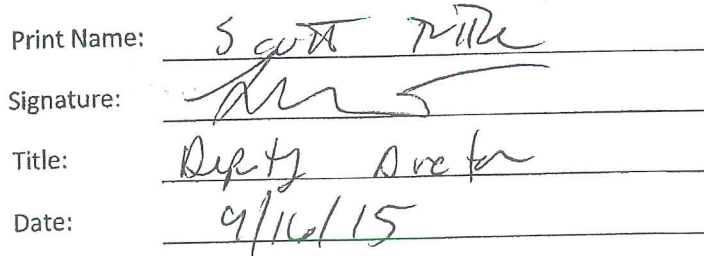 Print Name: Scott
Signature:
Title: Deputy Director
Date: 9/16/15